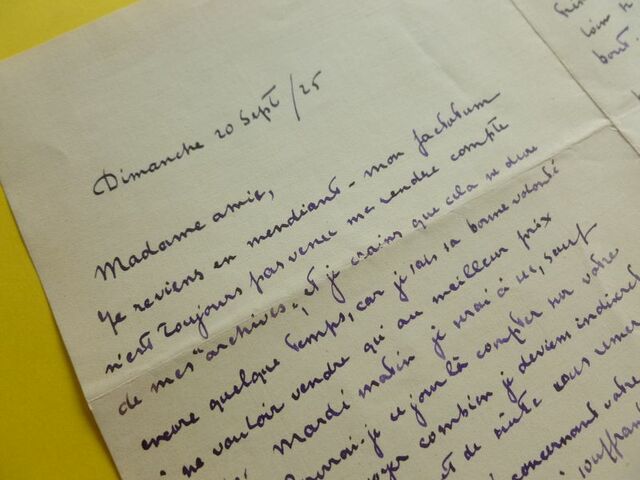 Dimanche 20 Sept /25
Madame amie,
Je reviens en mendiant - mon factotum
n'est toujours pas venu me rendre compte
de mes "archives", et je crains que cela ne dure
encore quelque temps, car je sais sa bonne volonté
ne vouloir vendre qu'au meilleur prix
Mardi matin je serai à
ce jour là compter sur votre
combien je deviens indiscret
de suite vous
concernant votre
bout.